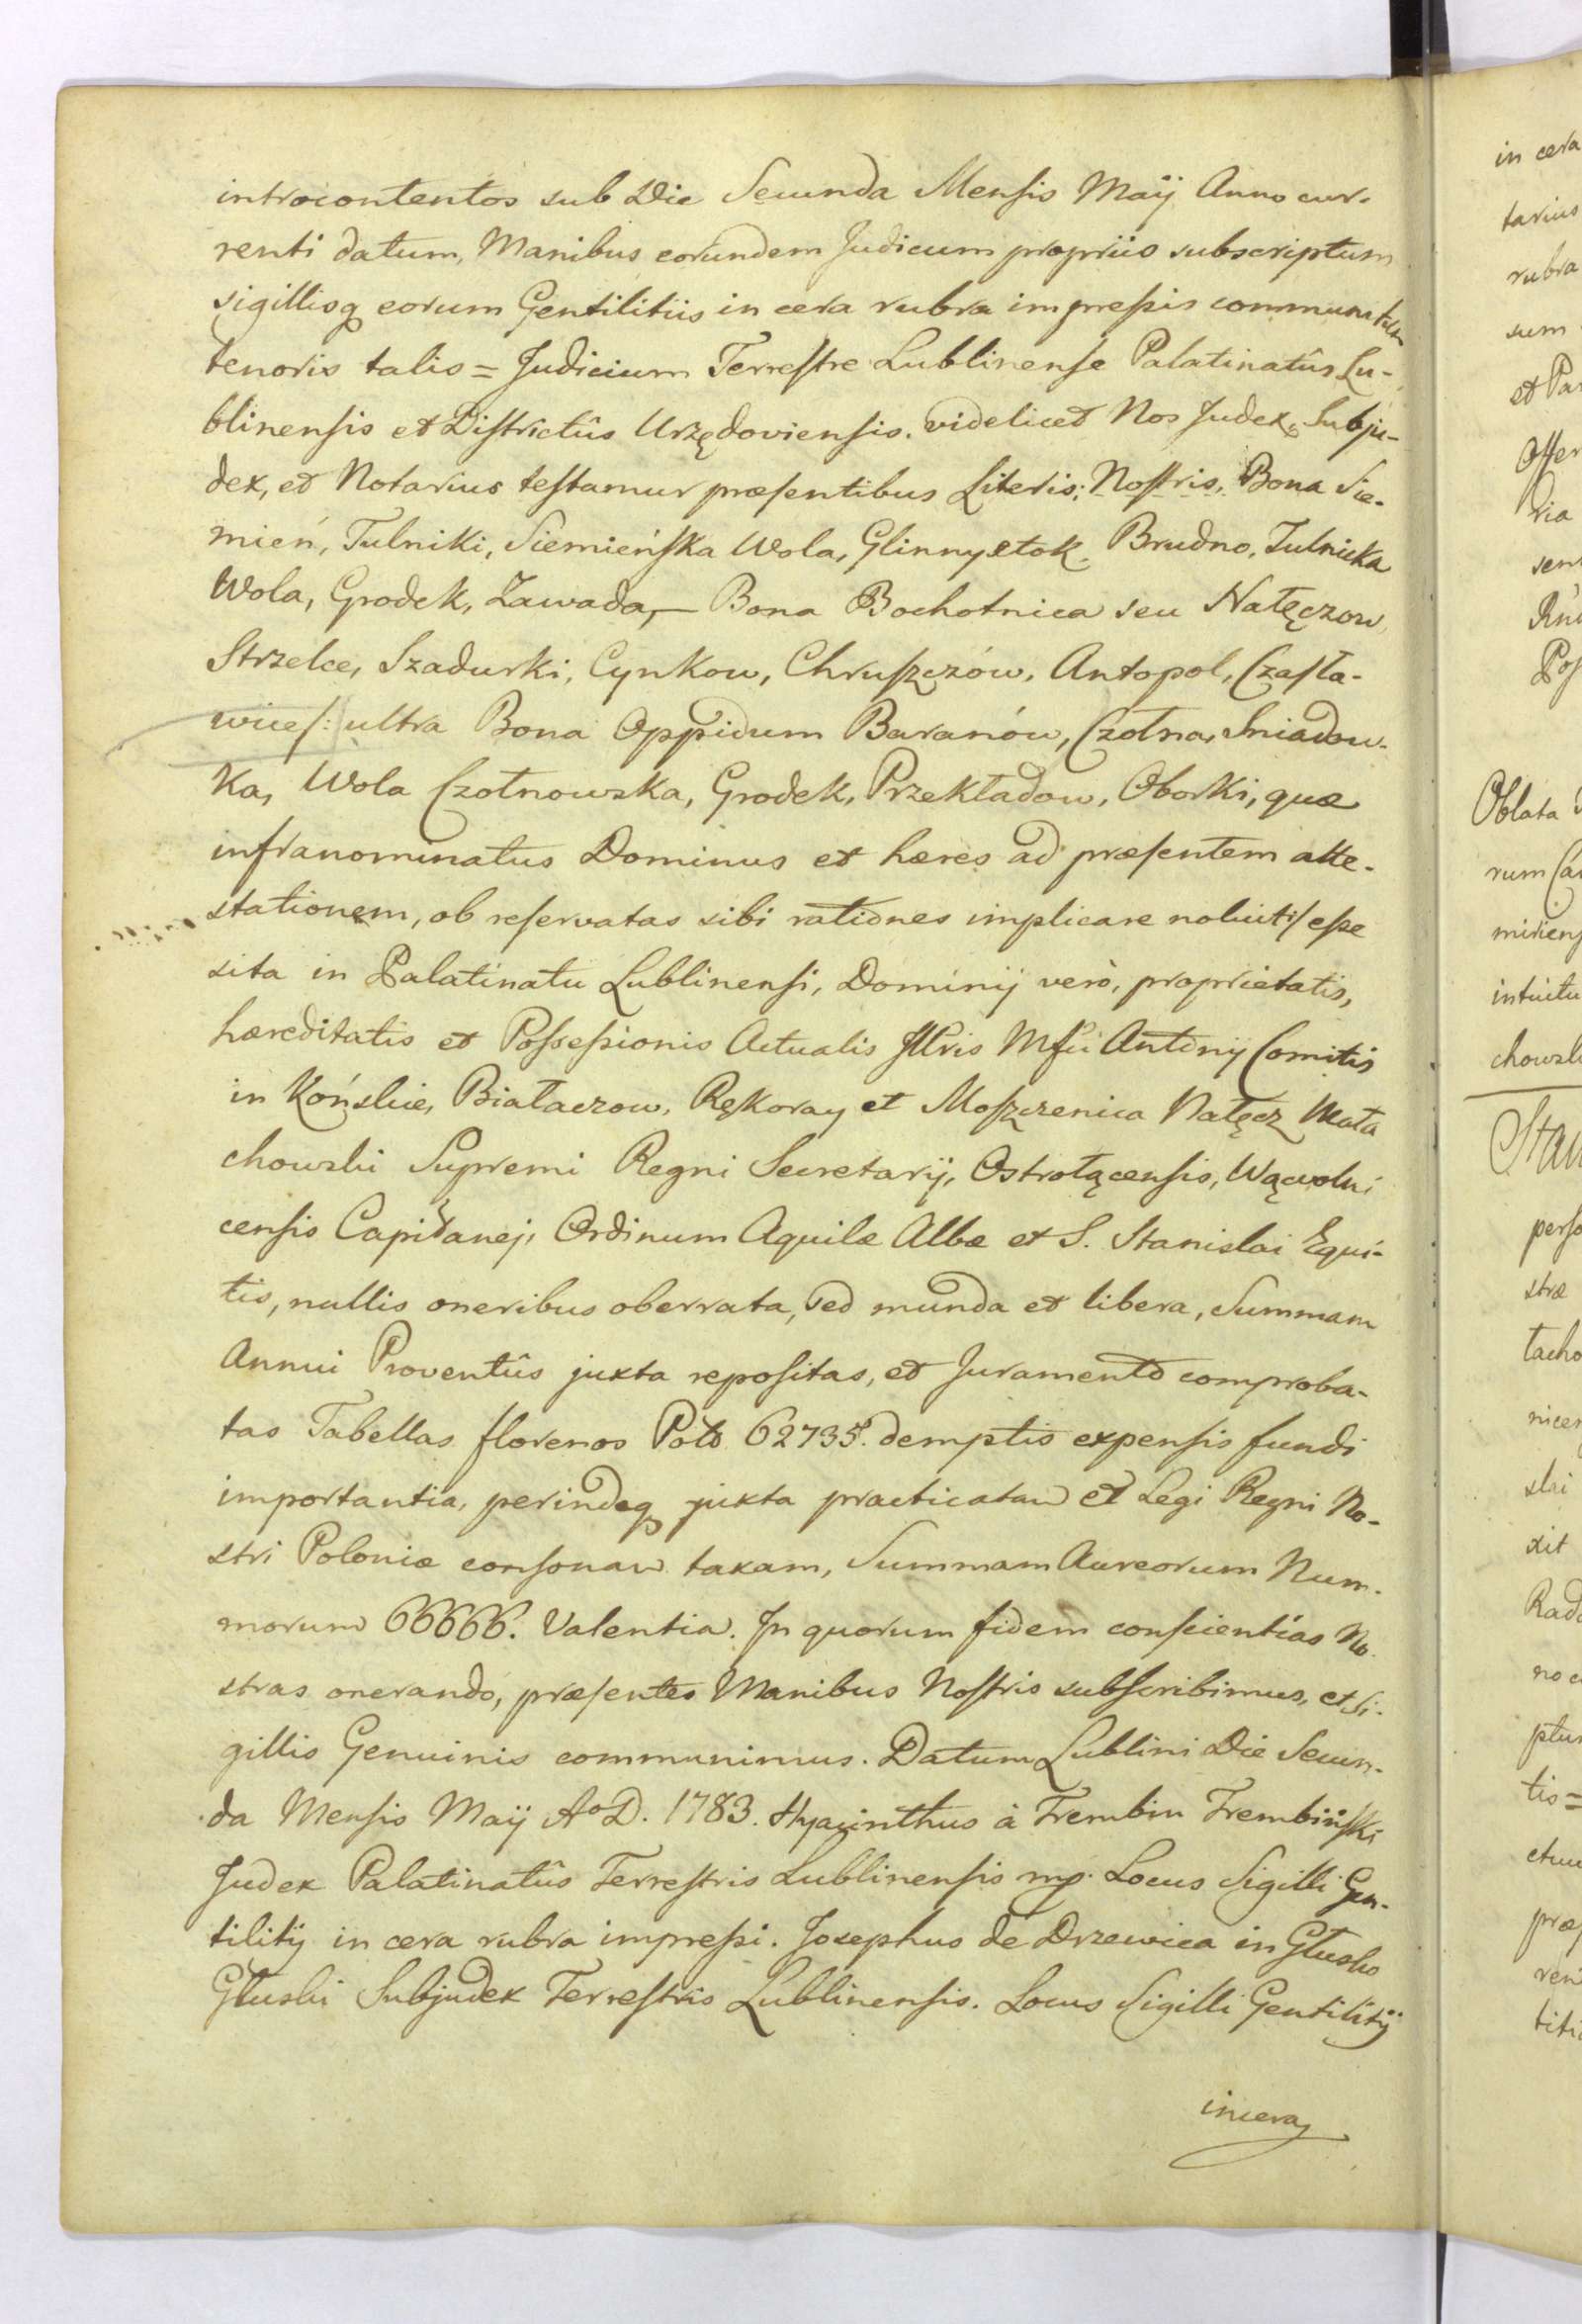 introcontentos sub Die Secunda Mensis Maÿ Anno cur-
renti datum, Manibus eorundem Judicum propriis subscriptum
sigillisq eorum Gentilitiis in cera rubra impressis communitum
tenoris talis = Judicium Terrestre Lublinense Palatinatûs Lu-
blinensis et Districtûs Urzędoviensis. videlicet Nos Judex, Subju-
dex, et Notarius testamur præsentibus Literis Nostris, Bona Sie-
mień, Tulniki, Siemieńska Wola, Glinny stok, Brudno, Tulnicka
Wola, Grodek, Zawada, — Bona Bochotnica seu Nałęczow,
Strzelce, Szadurki, Cynkow, Chruszczów, Antopol, Czasła-
wice/: ultra Bona Oppidum Baranów, Czołna, Sniadow-
ka, Wola Czołnowska, Grodek, Przekładow, Oborki, quæ
infranominatus Dominus et hæres ad præsentem atte-
stationem, ob reservatas sibi rationes implicare noluit:/ esse
sita in Palatinatu Lublinensi, Dominij verò, proprietatis,
hæreditatis et Possessionis Actualis Illris Mfci Antonij Comitis
in Końskie, Białaczow, Rękoray et Moszczenica Nałęcz Mała
chowski Supremi Regni Secretarij, Ostrołącensis, Wąwolni
censis Capitanej, Ordinum Aquilæ Albæ et S. Stanislai Equi-
tis, nullis oneribus oberrata, sed munda et libera, Summam
Annui Proventûs juxta repositas, et Juramento comproba-
tas Tabellas florenos Pol 62735. demptis expensis fundi
importantia, perindeq juxta practicatam et Legi Regni No-
stri Poloniæ consonam taxam, Summam Aureorum Num-
morum 66666. Valentia. In quorum fidem conscientias No-
stras onerando, præsentes Manibus Nostris subscribimus, et Si-
gillis Genuinis communimus. Datum Lublini Die Secun-
da Mensis Maÿ Aº D. 1783. Hyacinthus à Trembin Trembiński
Judex Palatinatûs Terrestris Lublinensis mp. Locus Sigilli Gen-
tilitij in cera rubra impressi. Josephus de Drzewica in Głusko
Głuski Subjudex Terrestris Lublinensis. Locus Sigilli Gentilitij
in cera
in cera
tarius
rubra
sum
et Pa
Offer
ria
sen
Pos
Oblata
rum Ca
miriens
intuitu
chowsk
Stan
perso
stræ
tacho
nicen
slai
xit
Rado
no c
ptu
tis =
ctu
præ
ren
titi